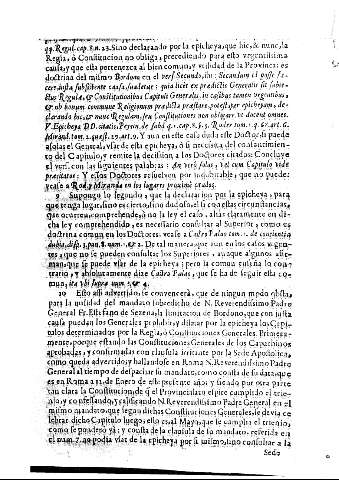 49. Regul. cap. 8. n. 23. Sino declarando por la epicheya, que hic, & nunc, la
Regla, ò Constitucion no obliga, precediendo para esto vrgentissima
causa, y que esta pertenezca al bien comun, y vtilidad de la Provincia: es
doctrina del mismo Bordono en el vers. Secundo, ibi: Secundum est posse
iusta subsistente causa suadetur: quia licet ex praedictis Generalis sit
ctus Regulae, & Constitutionibus Capituli Generalis, in casibus tamen vrgentibus,
& ob bonum commune Religionis praedicta praestare potest per epicheyam, de-
clarando hic, & nunc Regulam, seu Constitutiones non obligare
V. Epicheya DD. citatis
Mirand. tom. 2. Y aun en este caso duda este Doctor, si puede
à solas el General, vsar de esta epicheya, ò si necessita del consentimiento
del Capitulo, y remite la decision à los Doctores citados: Concluye
el vers. con las siguientes palabras: An vero solus, vel cum Capitulo vide
praecitatos: Y estos Doctores resuelven por indubitable, que no puede:
vease à Rod. y Miranda en los lugares proxime citados.
9 Supongo lo segundo, que la declaracion por la epicheya, para
que tenga lugar, si no es certissimo, y dudoso, el si con estas circunstancias,
que ocurren, comprehende, ò no la ley el caso, ahita claramente en di-
cha ley comprehendido, es necessario consultar al Superior, como es
doctrina comun en los Doctores: vease à Castro Palao tom. 1. de conscientia
dubia, disp. 1. pun. 8. num. 1. & 2. De tal manera, que aun en los casos vrgen-
tes, que no se pueden consultar los Superiores, aunque algunos afir-
man, que se puede vsar de la epicheya; pero la comun enseña lo con-
trario, y absolutamente dize Castro Palao, que se ha de seguir esta co-
mun, ita vbi supra num. 3. & 4.
10 Esto assi advertido, se convencerà, que de ningun modo obsta,
para la nulidad del mandato inhibendi de N. Reverendissimo Padre
General Fr. Estefano de Sezena, la limitacion de Bordono, que con justa
causa puedan los Generales prohibir, y dilatar por la epicheya los Capi-
tulos determinados por la Regla, ò Constituciones Generales. Primera-
mente, porque estando las Constituciones Generales de los Capuchinos
aprobadas, y confirmadas con clausula irritante por la Sede Apostolica,
como queda advertido; y hallandose en Roma N. Reverendissimo Padre
General al tiempo de despachar su mandato, como consta de su data, que
es en Roma à 21. de Enero de este presente año; y siendo por otra parte
tan clara la Constitucion, de q̃ el Provincialato espire cumplido el trie-
nio, y confessando, y calificando N. Reverendissimo Padre General en el
mismo mandato, que segun dichas Constituciones Generales, se devia ce-
lebrar dicho Capitulo luego, esto es al Mayo, que se cumplia el trienio,
como se pondera yà; y consta de la clausula de su mandato, referida en
el num. 7. no podia vsar de la epicheya por si mismo, sin consultar à la
Sede